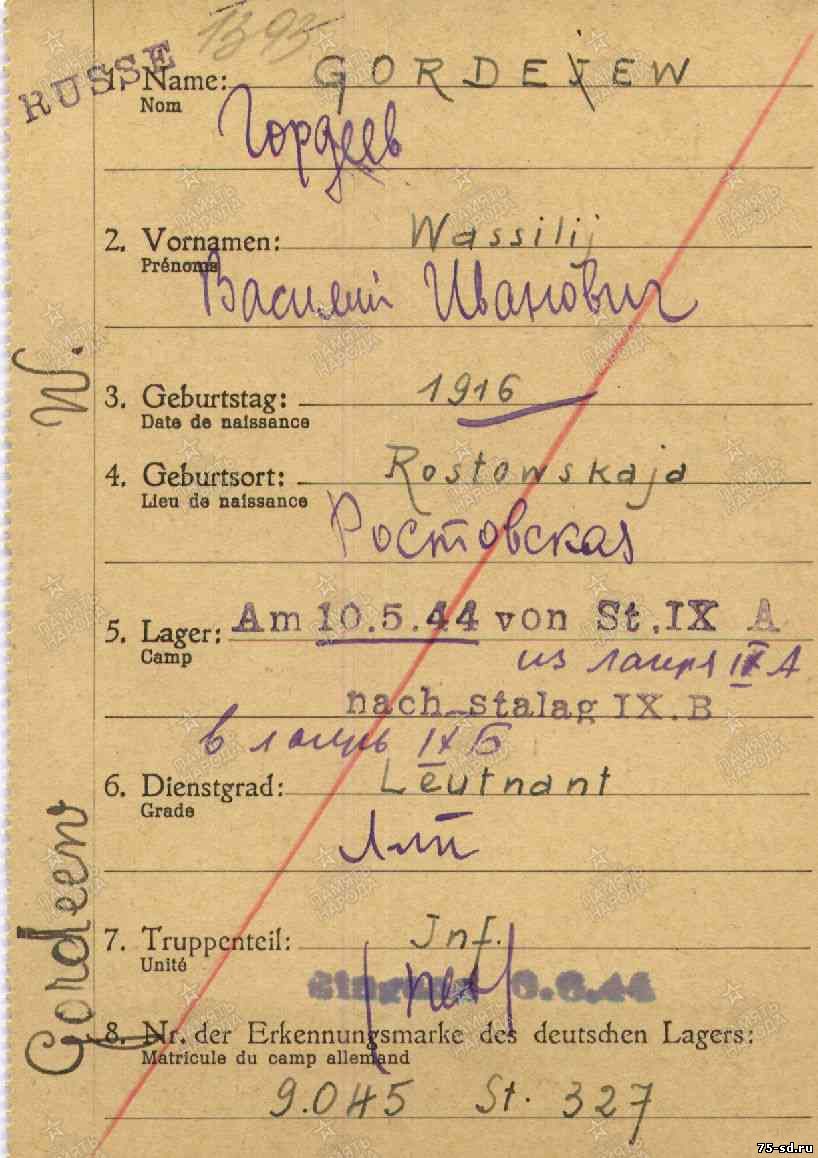 1393
RUSSE
1. Name: GORDEJEW
Nom
Гордеев
2. Vornamen: Wassilij
Prénoms
Василий Иванович
3. Geburtstag: 1916
Date de naissance
4. Geburtsort: Rostowskaja
Lieu de naissance
Ростовская
5. Lager: Am 10.5.44 von St. IX A
Camp
из лагеря IX А
nach stalag IX.B
в лагерь IX Б
6. Dienstgrad: Leutnant
Grade
Л-т
7. Truppenteil: Jnf.
Unité
6.6.44
8. Nr. der Erkennungsmarke des deutschen Lagers:
Matricule du camp allemand
9.045 St. 327
Gordeew W.
ПАМЯТЬ НАРОДА
75-sd.ru